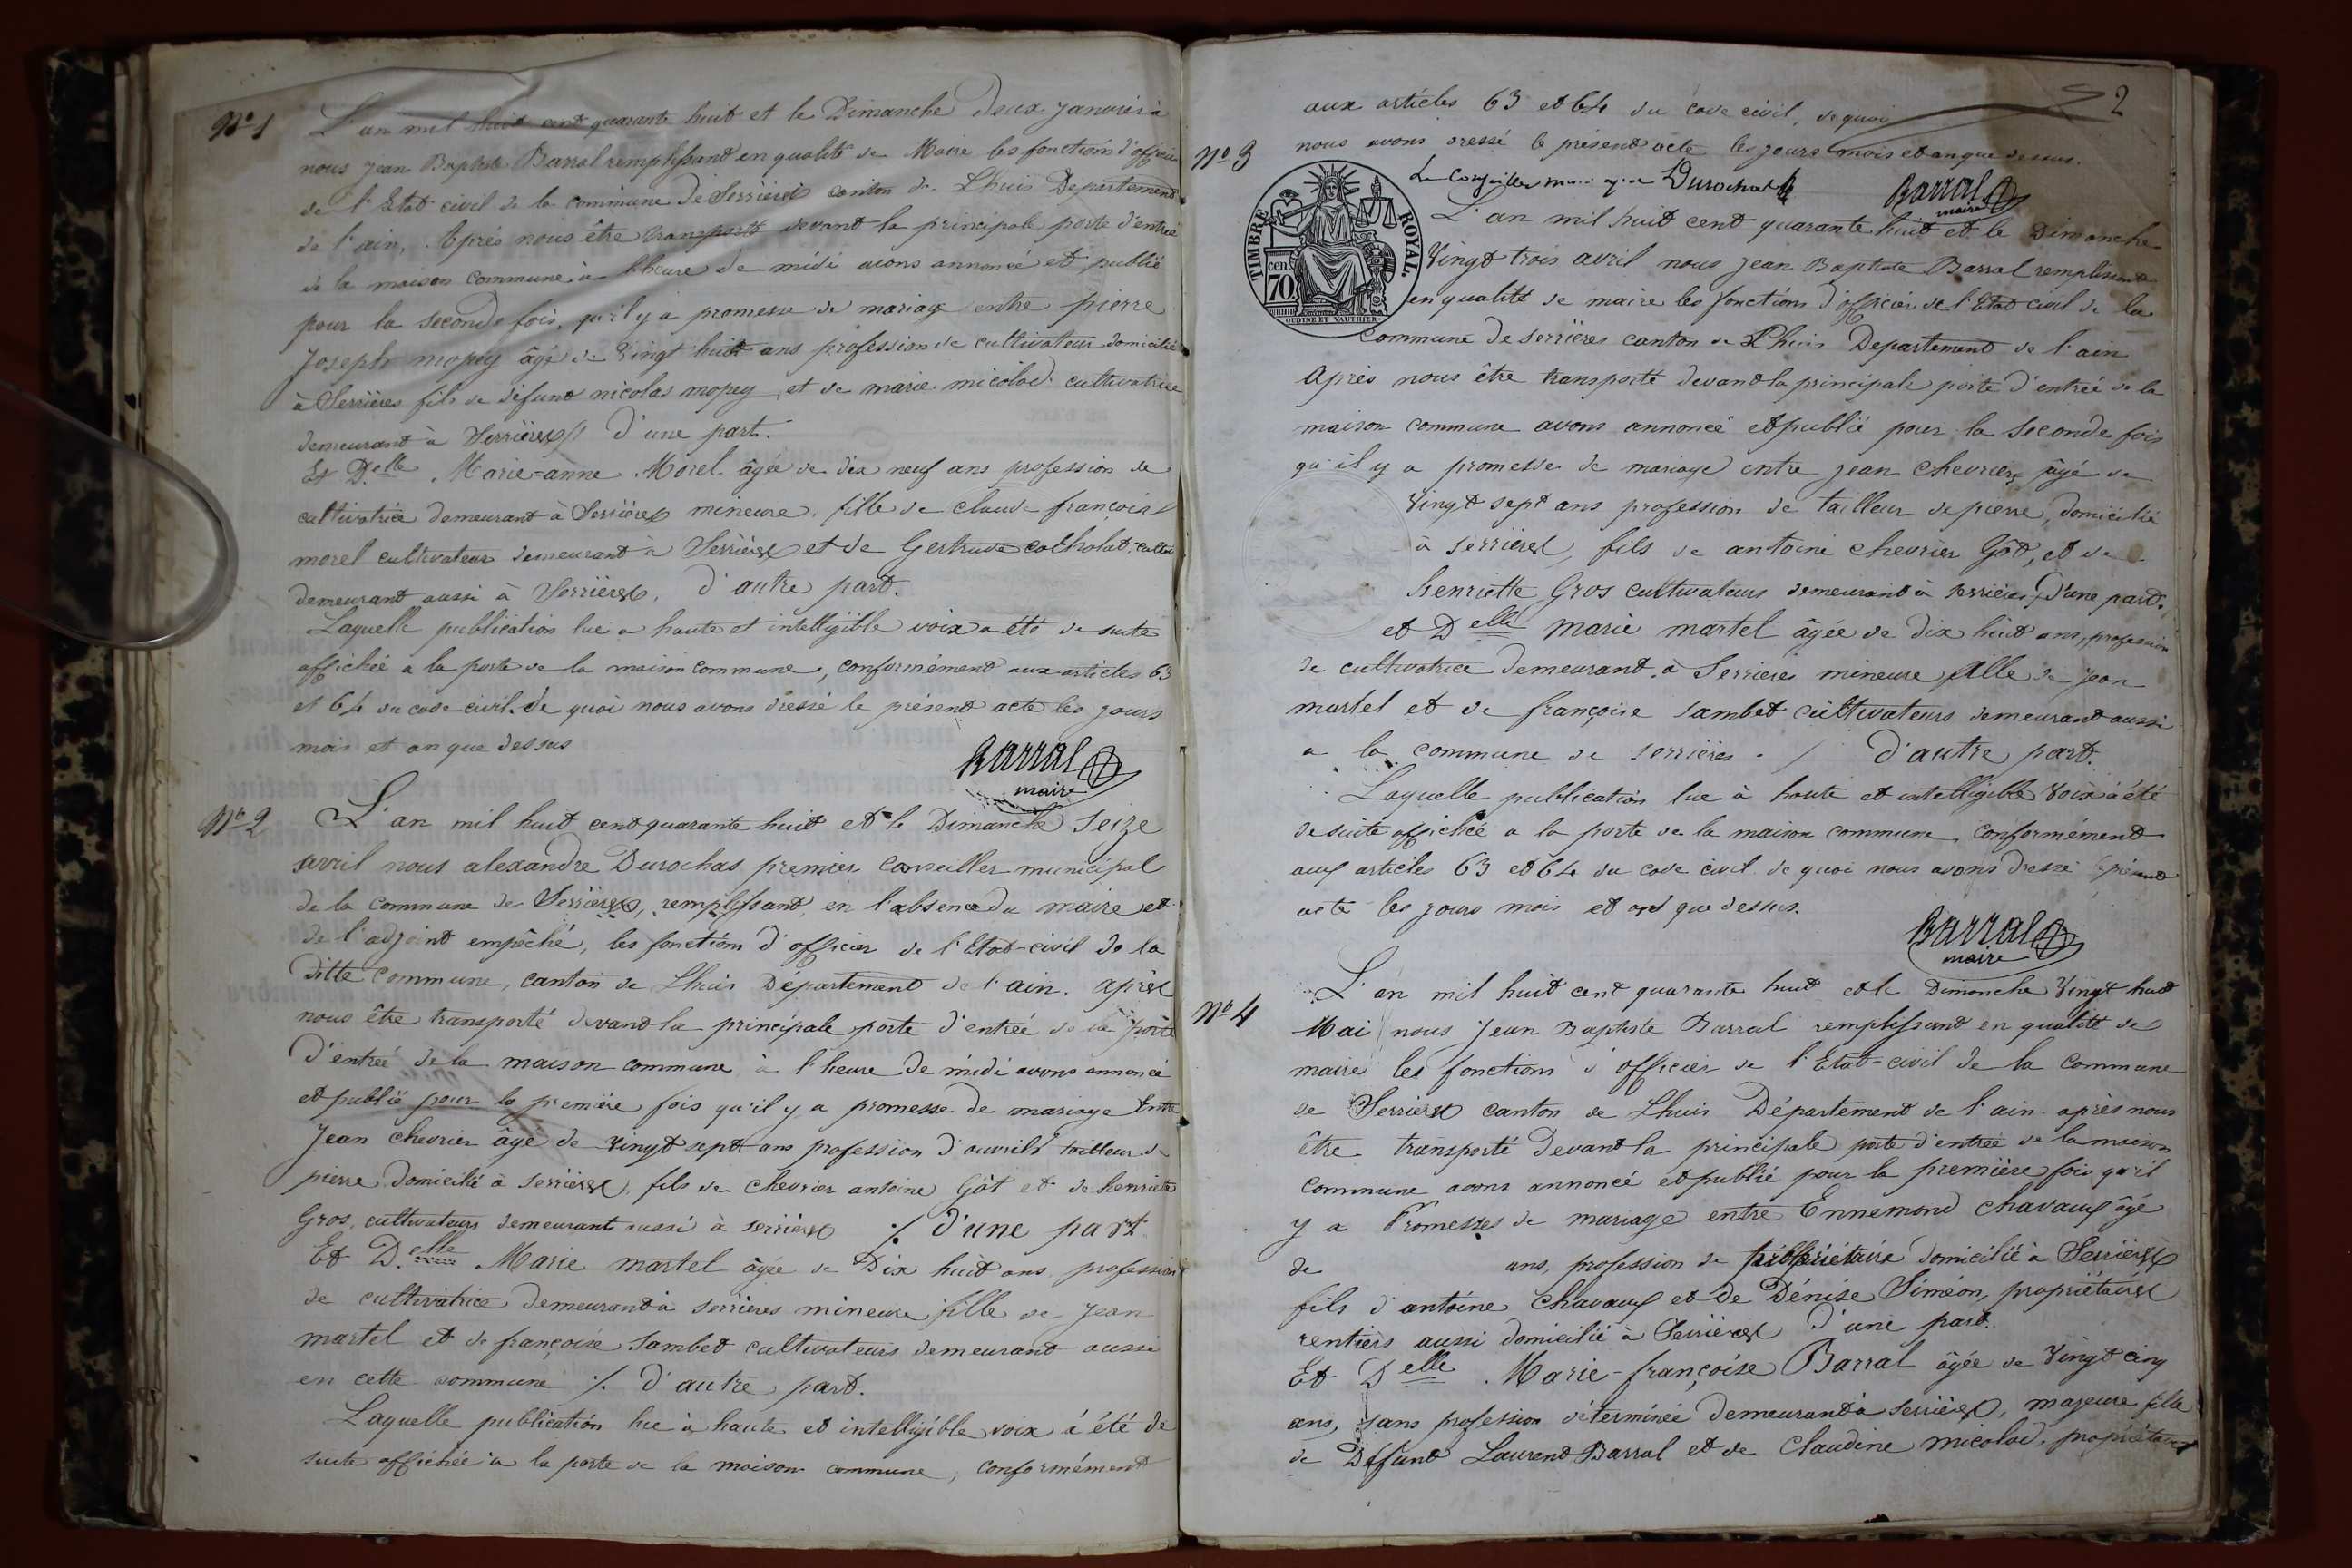 Nº 1
L'an mil huit cent quarante huit et le Dimanche deux Janvier
nous Jean Baptiste Barral remplissant en qualité de Maire les fonctions d'officier
de l'Etat civil de la commune de Serrières canton de Lhuis Departement
de l'ain, Après nous être transporté devant la principale porte d'entrée
de la maison commune à l'heure de midi avons annoncé et publié
pour la seconde fois, qu'il y a promesse de mariage entre pierre
Joseph mopey âgé de Vingt huit ans profession de cultivateur domicilié
à Serrières fils de défunt nicolas mopey et de marie micolod cultivatrice
demeurant à Serrières d'une part.
Et D.elle Marie-anne Morel âgée de dix neuf ans profession de
cultivatrice demeurant à Serrières mineure, fille de claude françois
morel cultivateur demeurant à Serrières et de Gertrude
demeurant aussi à Serrières, d'autre part.
Laquelle publication lue a haute et intelligible voix a été de suite
affichée a la porte de la maison commune, conformément aux articles 63
et 64 du code civil. de quoi nous avons dressé le présent acte les jours
mois et an que dessus
Barral
maire
Nº 2
L'an mil huit cent quarante huit et le Dimanche Seize
avril nous alexandre Durochas premier Conseiller municipal
de la commune de Serrières, remplissant, en l'absence du maire et
de l'adjoint empêché, les fonctions d'officier de l'Etat-civil de la
ditte commune, canton de Lhuis Département de l'ain. après
nous être transporté devant la principale porte d'entrée de la porte
d'entrée de la maison commune à l'heure de midi avons annoncé
et publié pour la première fois qu'il y a promesse de mariage Entre
Jean chevrier âgé de vingt sept ans profession d'ouvrier tailleur de
pierre domicilié à serrières, fils de chevrier antoine Gôt et de henriette
Gros, cultivateurs demeurant aussi à serrières ./. d'une part
Et D.elle Marie martel âgée de Dix huit ans profession
de cultivatrice demeurant à serrières mineure, fille de Jean
martel et de françoise Sambet cultivateurs demeurant aussi
en cette commune ./. d'autre part.
Laquelle publication lue à haute et intelligible voix à été de
suite affichée à la porte de la maison commune, conformément
2
aux articles 63 et 64 du code civil, de quoi
nous avons dressé le présent acte les jours mois et an que dessus.
Le Conseiller Durochas
Barral
maire
Nº 3
TIMBRE ROYAL.
cen
70
OUDINE ET VAUTHIER
L'an mil huit cent quarante huit et le Dimanche
Vingt trois avril nous Jean Baptiste Barral remplissant
en qualité de maire les fonctions d'officier de l'Etat civil de la
Commune de serrières canton de Lhuis Departement de l'ain
Après nous être transporté devant la principale porte d'entrée de la
maison commune avons annoncé et publié pour la seconde fois
qu'il y a promesse de mariage entre jean chevrier, âgé de
Vingt sept ans profession de tailleur de pierre, domicilié
à serrières, fils de antoine chevrier Gôt, et de
henriette Gros cultivateurs demeurant à serrières, D'une part.
et Delle marie martel âgée de dix huit ans, profession
de cultivatrice demeurant à Serrières mineure fille de Jean
martel et de françoise Sambet cultivateurs demeurant aussi
a la commune de serrières ./ d'autre part.
Laquelle publication lue à haute et intelligible Voix à été
de suite affichée a la porte de la maison commune, conformément
aux articles 63 et 64 du code civil de quoi nous avons dressé le présent
acte les jours mois et an que dessus.
Barral
maire
Nº 4
L'an mil huit cent quarante huit et le Dimanche Vingt huit
Mai nous Jean Baptiste Barral remplissant en qualité de
maire les fonctions d'officier de l'Etat-civil de la Commune
de Serrières canton de Lhuis Département de l'ain après nous
être transporté Devant la principale porte d'entrée de la maison
commune avons annoncé et publié pour la première fois qu'il
y a Promesses de mariage entre Ennemond Chavaux âgé
de ans, profession de propriétaire domicilié à Serrières
fils d'antoine Chavaux et de Dénise Siméon, propriétaires
rentiers aussi domicilié à Serrières D'une part.
Et Delle Marie-françoise Barral âgée de Vingt cinq
ans, sans profession déterminée demeurant à serrières, majeure fille
de Défunt Laurent Barral et de Claudine micolod, propriétaires